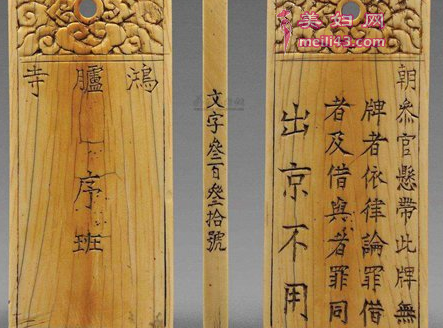 鴻臚寺
序班
文字叄百叄拾號
朝參官懸帶此牌無
牌者依律論罪借
者及借與者罪同
出京不用
美妇网
meili43.com